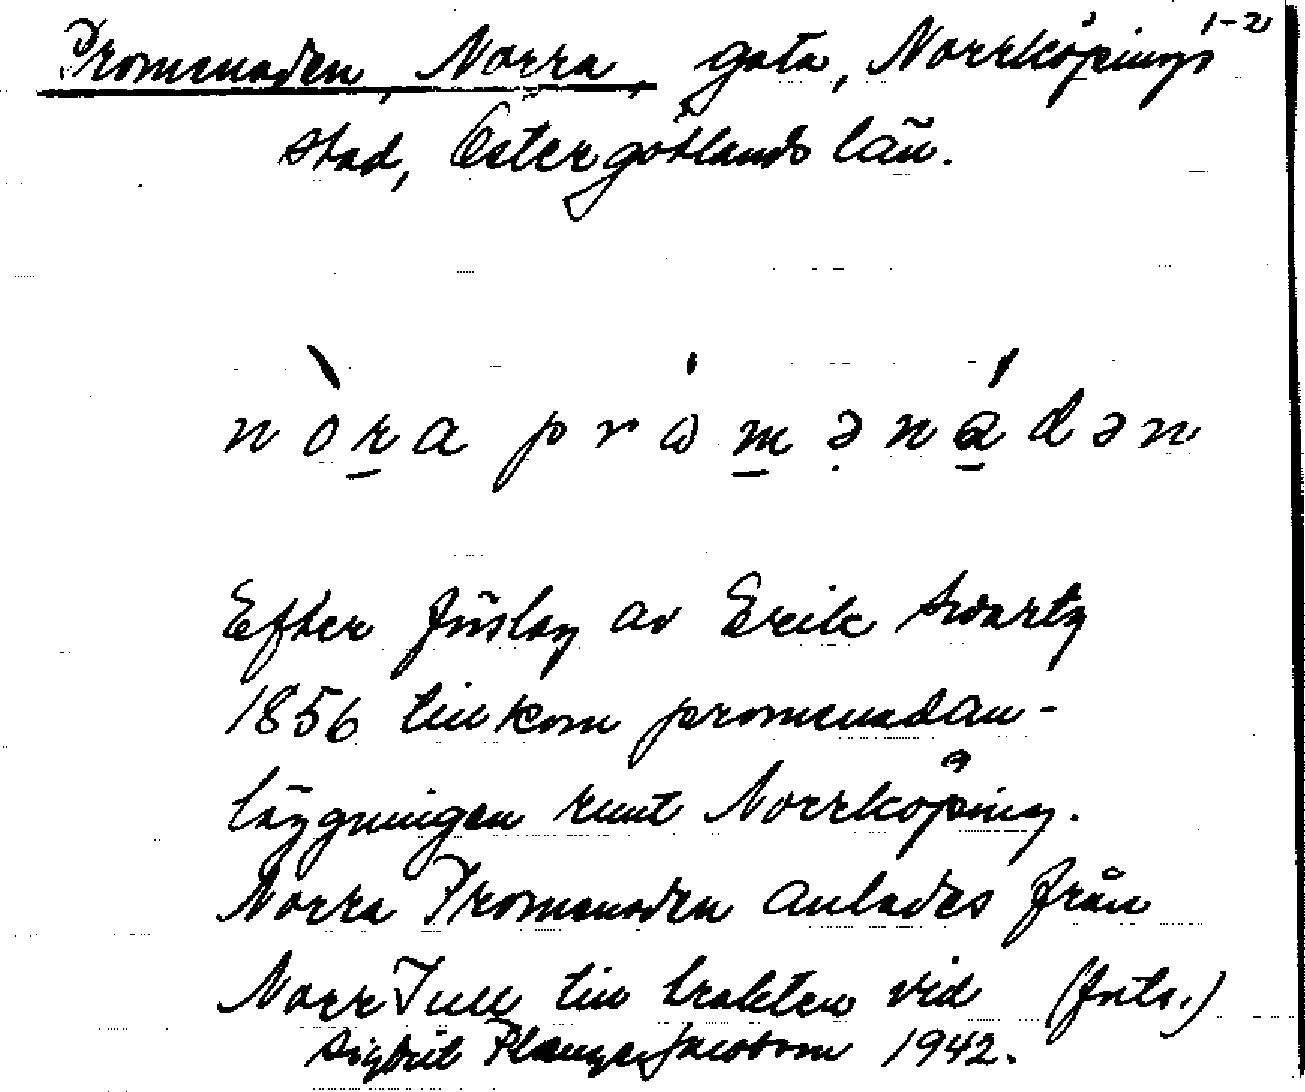 1-2
Promenaden, Norra, gata, Norrköpings
stad, Östergötlands län.
nòra pròmənádən
Efter förslag av Erik Swartz
1856 tillkom promenadan-
läggningen runt Norrköping.
Norra Promenaden anlades från
Norr Tull till trakten vid (forts.)
Sigbrit Plænge Jacobson 1942.